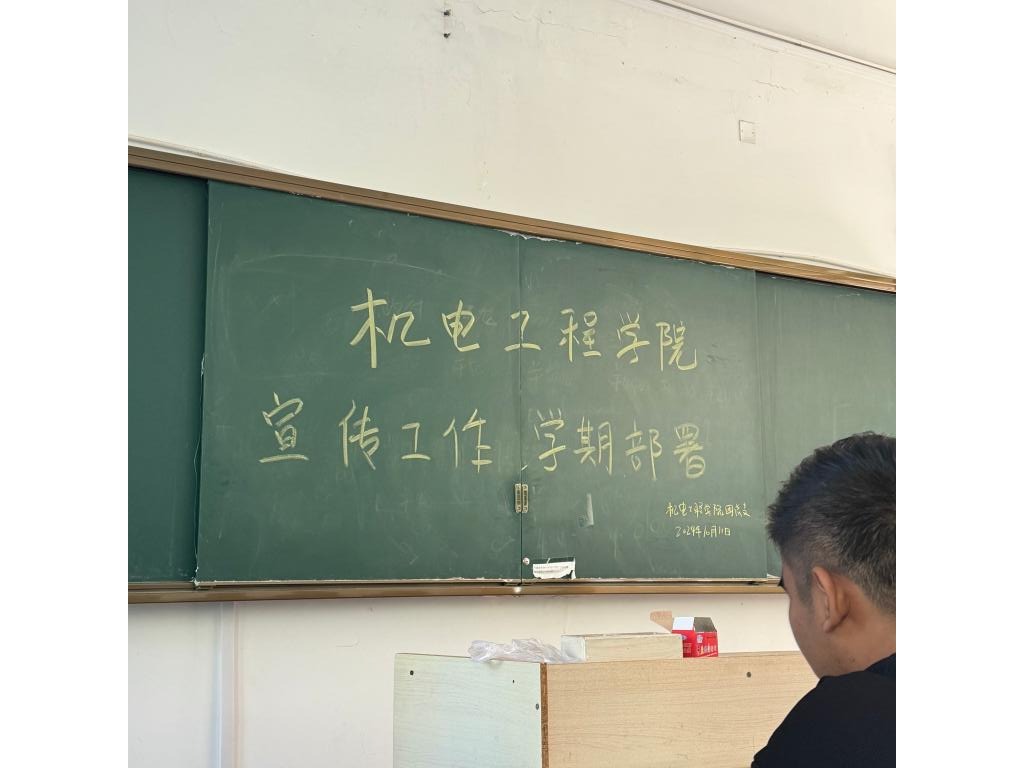 机电工程学院
宣传工作学期部署
机电工程学院团总支
2024年10月11日